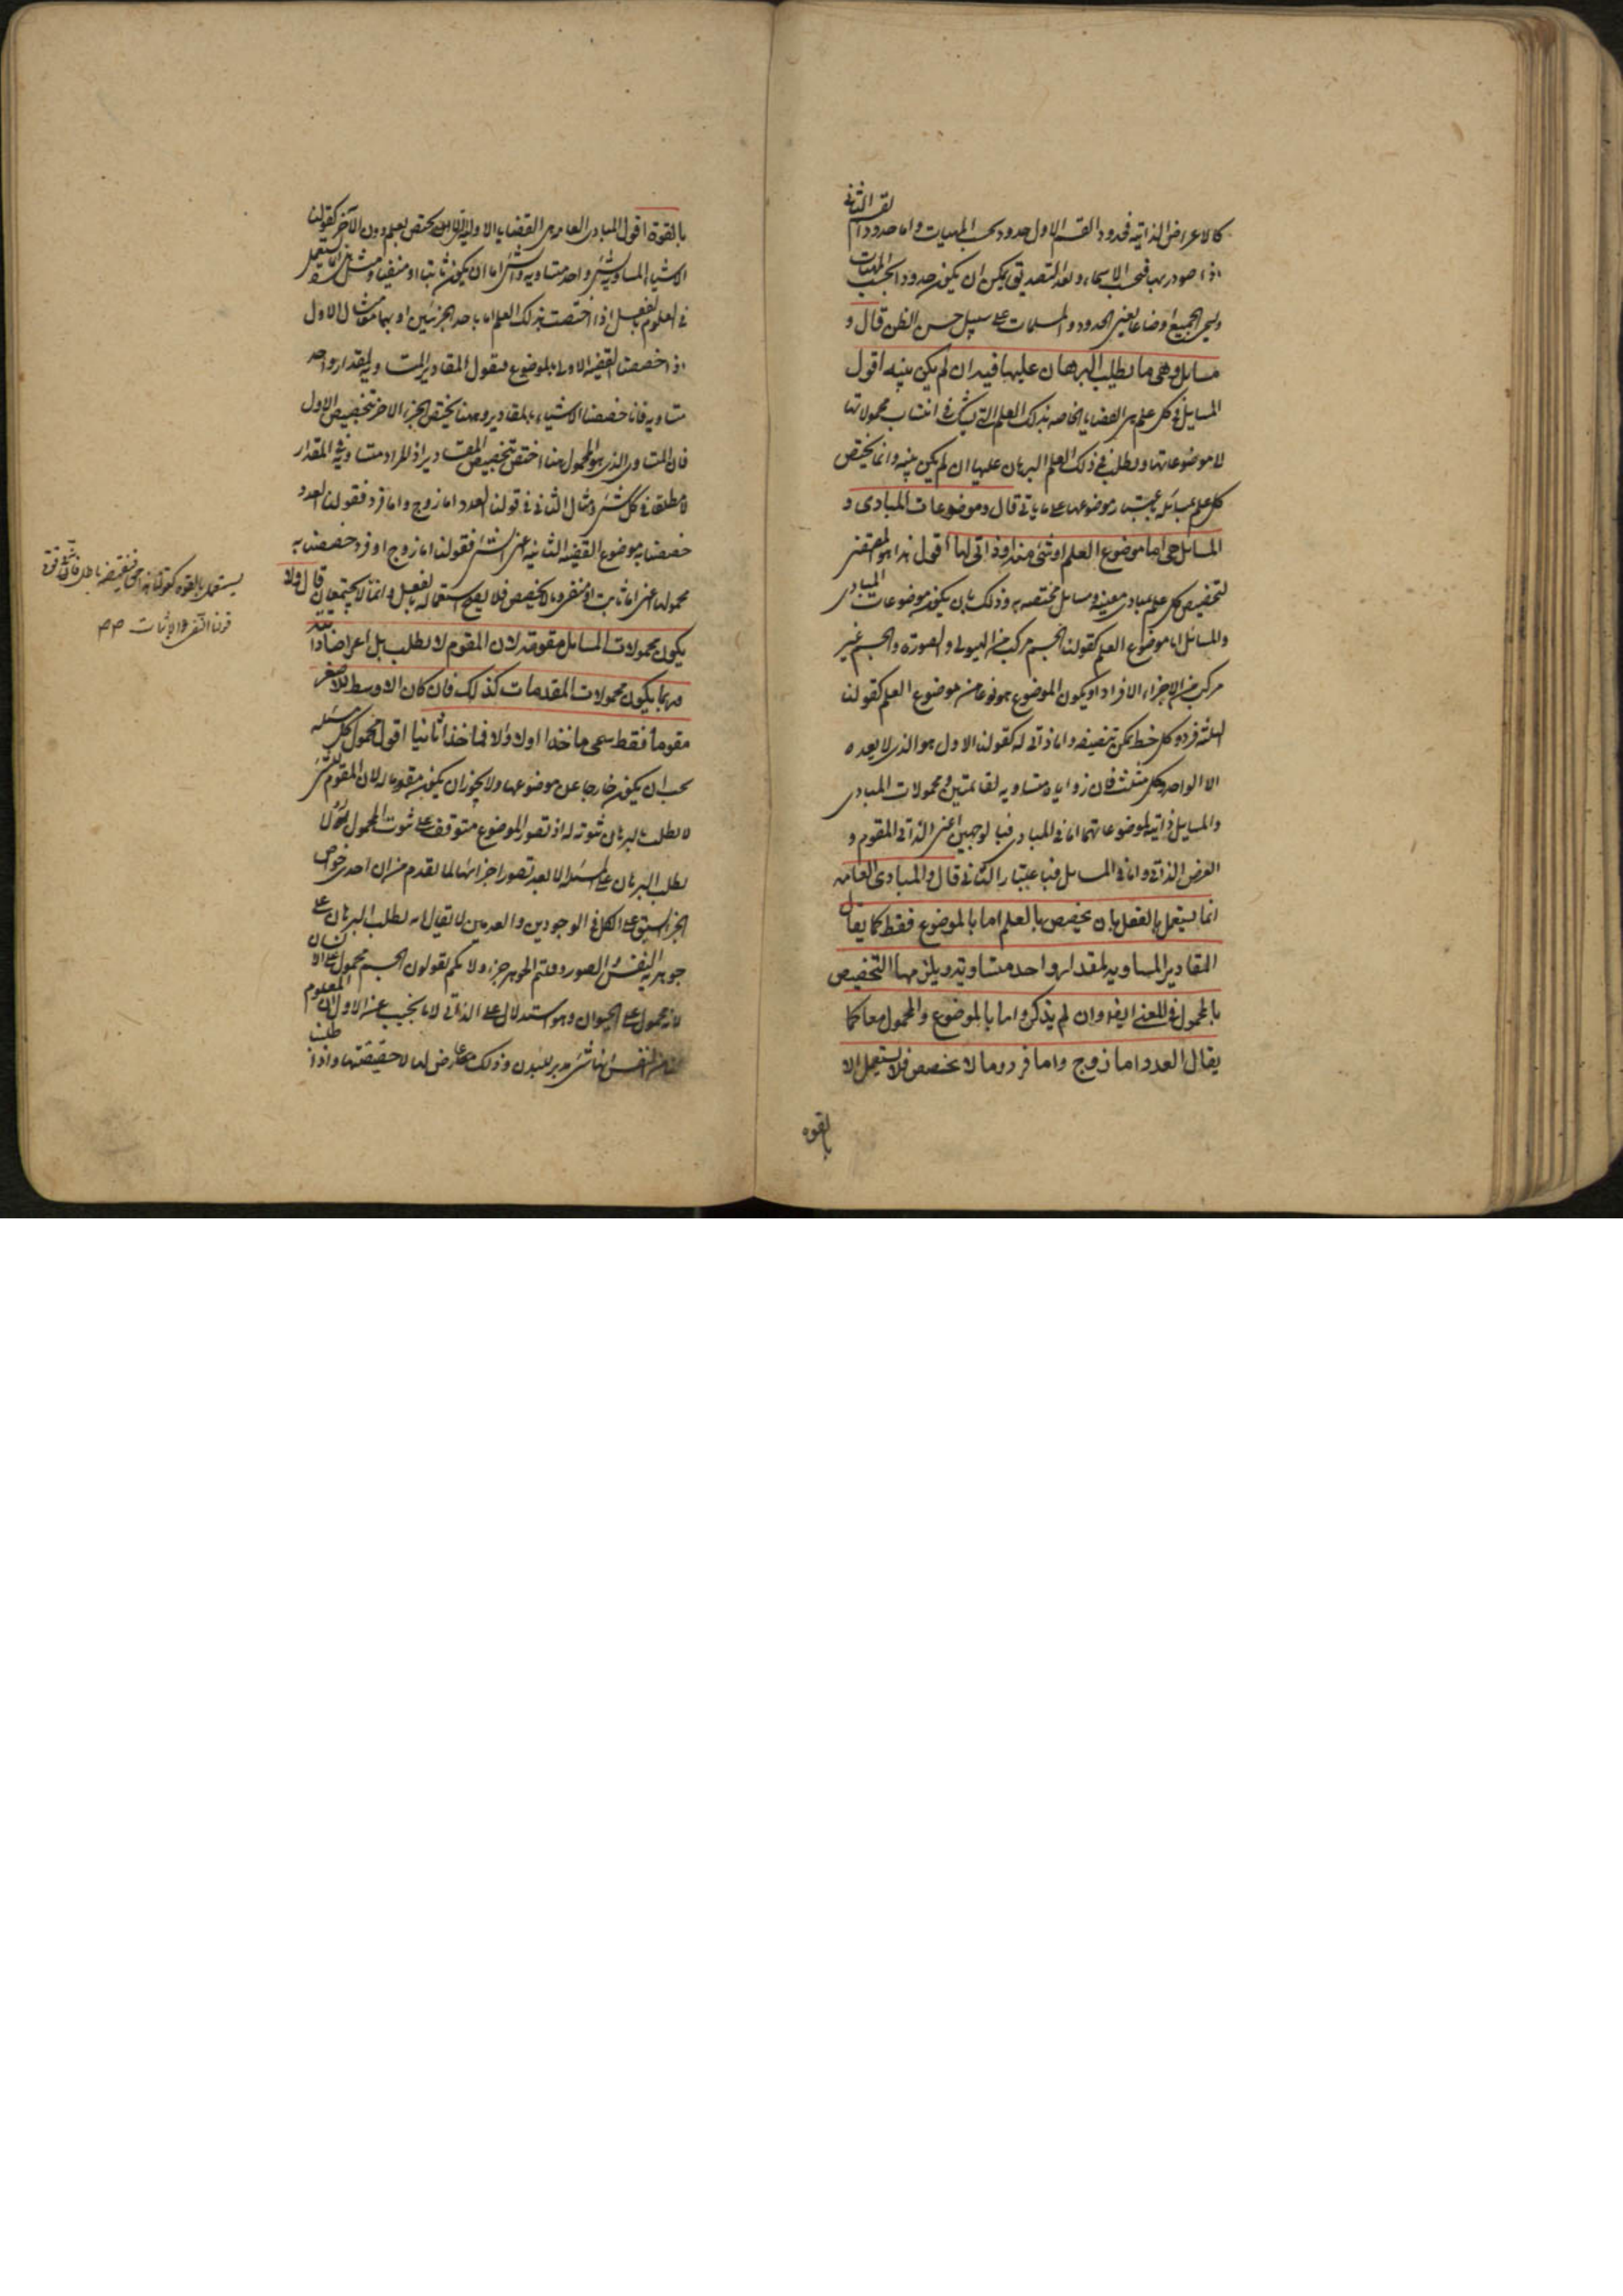 كالاعراض الذاتيه فحدود القسم الاول حدود بحسب المهيات واما حدود القسم الثاني
اذا صودر بها فبحسب الاسماء وبعد التصديق يمكن ان يكون حدودا بحسب المهيات
ويسمى الجميع اوضاعا يعنى الحدود والمسلمات على سبيل حسن الظن قال و
مسايل وهى ما يطلب البرهان عليها فيه ان لم يكن بينه اقول
المسايل فى كل علم هى القضايا الخاصه بذلك العلم التى يشك فى انتساب محمولاتها
لا موضوعاتها ويطلب فى ذلك العلم البرهان عليها ان لم يكن بينه وانما يختص
كل علم بمسائله باعتبار موضوعها على ما ياتى قال وموضوعات المبادى و
المسايل هى اما موضوع العلم او شئ منه او ذاتى لها اقول هذا هو المقتضى
لتخصيص كل علم بمبادى معينه ومسايل مختصه به وذلك بان يكون موضوعات المبادى
والمسائل اما موضوع العلم كقولنا الجسم مركب من الهيولى والصورة والجسم غير
مركب من الاجزاء الافراد او يكون الموضوع هو نوعا من موضوع العلم كقولنا
الثلثة فرد وكل خط يمكن تنصيفه واما ذاتى له كقولنا الاول هو الذى لا يعده
الا الواحد وكل مثلث فان زواياه متساويه لقائمتين ومحمولات المبادى
والمسايل ذاتية لموضوعاتهما اما فى المبادى فبالوجهين اعنى الذاتى المقوم و
العرض الذاتى واما فى المسايل فباعتبار الثانى قال والمبادى العامه
انما يستعمل بالفعل بان يخصص بالعلم اما بالموضوع فقط كما يقال
المقادير المساويه لمقدار واحد متساويه ويلزمها التخصيص
بالمحمول فى المعنى ايضا وان لم يذكر واما بالموضوع والمحمول معا كما
يقال العدد اما زوج واما فرد وما لا يخصص فلا يستعمل الا
بالقوه
بالقوة اقول المبادى العامة هى القضايا الاوليه التى لا يختص بعلم دون الآخر كقولنا
الاشياء المساويه لشئ واحد متساويه والشئ اما ان يكون ثابتا او منفيا ومثل هذا انما يستعمل
فى العلوم بالفعل اذا اختصت بذلك العلم اما باحد الجزئين او بهما معا مثال الاول
اذا خصصنا القضية الاولى بالموضوع فنقول المقادير المساويه لمقدار واحد
متساويه فانا خصصنا الاشياء بالمقادير وههنا يختص الجزء الاخر بتخصيص الاول
فان المتساوى الذى هو المحمول هنا اختص بتخصيص المقادير اذ المراد متساويه المقدار
لا مطلقا فى كل شئ ومثال الثانى فى قولنا العدد اما زوج واما فرد فقولنا العدد
خصصنا به موضوع القضية الثانيه اعنى الشئ فقولنا اما زوج او فرد خصصنا به
محمولها اعنى اما ثابت او منفى وما لا يخصص فلا يصح استعماله بالفعل وانما لا يجتمعان قال ولا
يكون محمولات المسايل مقومة لان المقوم لا يطلب بل اعراضا ذاتية
وربما يكون محمولات المقدمات كذلك فان كان الاوسط للاصغر
مقوما فقط سمى ماخذا اولا والا فماخذا ثانيا اقول محمول كل مسئله
يجب ان يكون خارجا عن موضوعها ولا يجوز ان يكون مقوما له لان المقوم للشئ
لا يطلب بالبرهان ثبوته له اذ تصور الموضوع متوقف على ثبوت المحمول له ولا
يطلب البرهان على المسئله الا بعد تصور اجزائها لما تقدم من ان احدى خواص
الجزء السبق على الكل فى الوجودين والعدمين لا يقال انه يطلب البرهان على
جوهرية النفس والصور وقلتم الجوهر جزء ولانكم تقولون الجسم محمول على الانسان
لانه محمول على الحيوان وهو استدلال على الذاتى لانا نجيب عن الاول ان المعلوم
من النفس انها شئ مدبر للبدن وذلك عارض لها لا حقيقتها واذا طلب
يستعمل بالقوه كقولنا هذا حق فنقيضه باطل فان فى قوة
قولنا النفى والاثبات